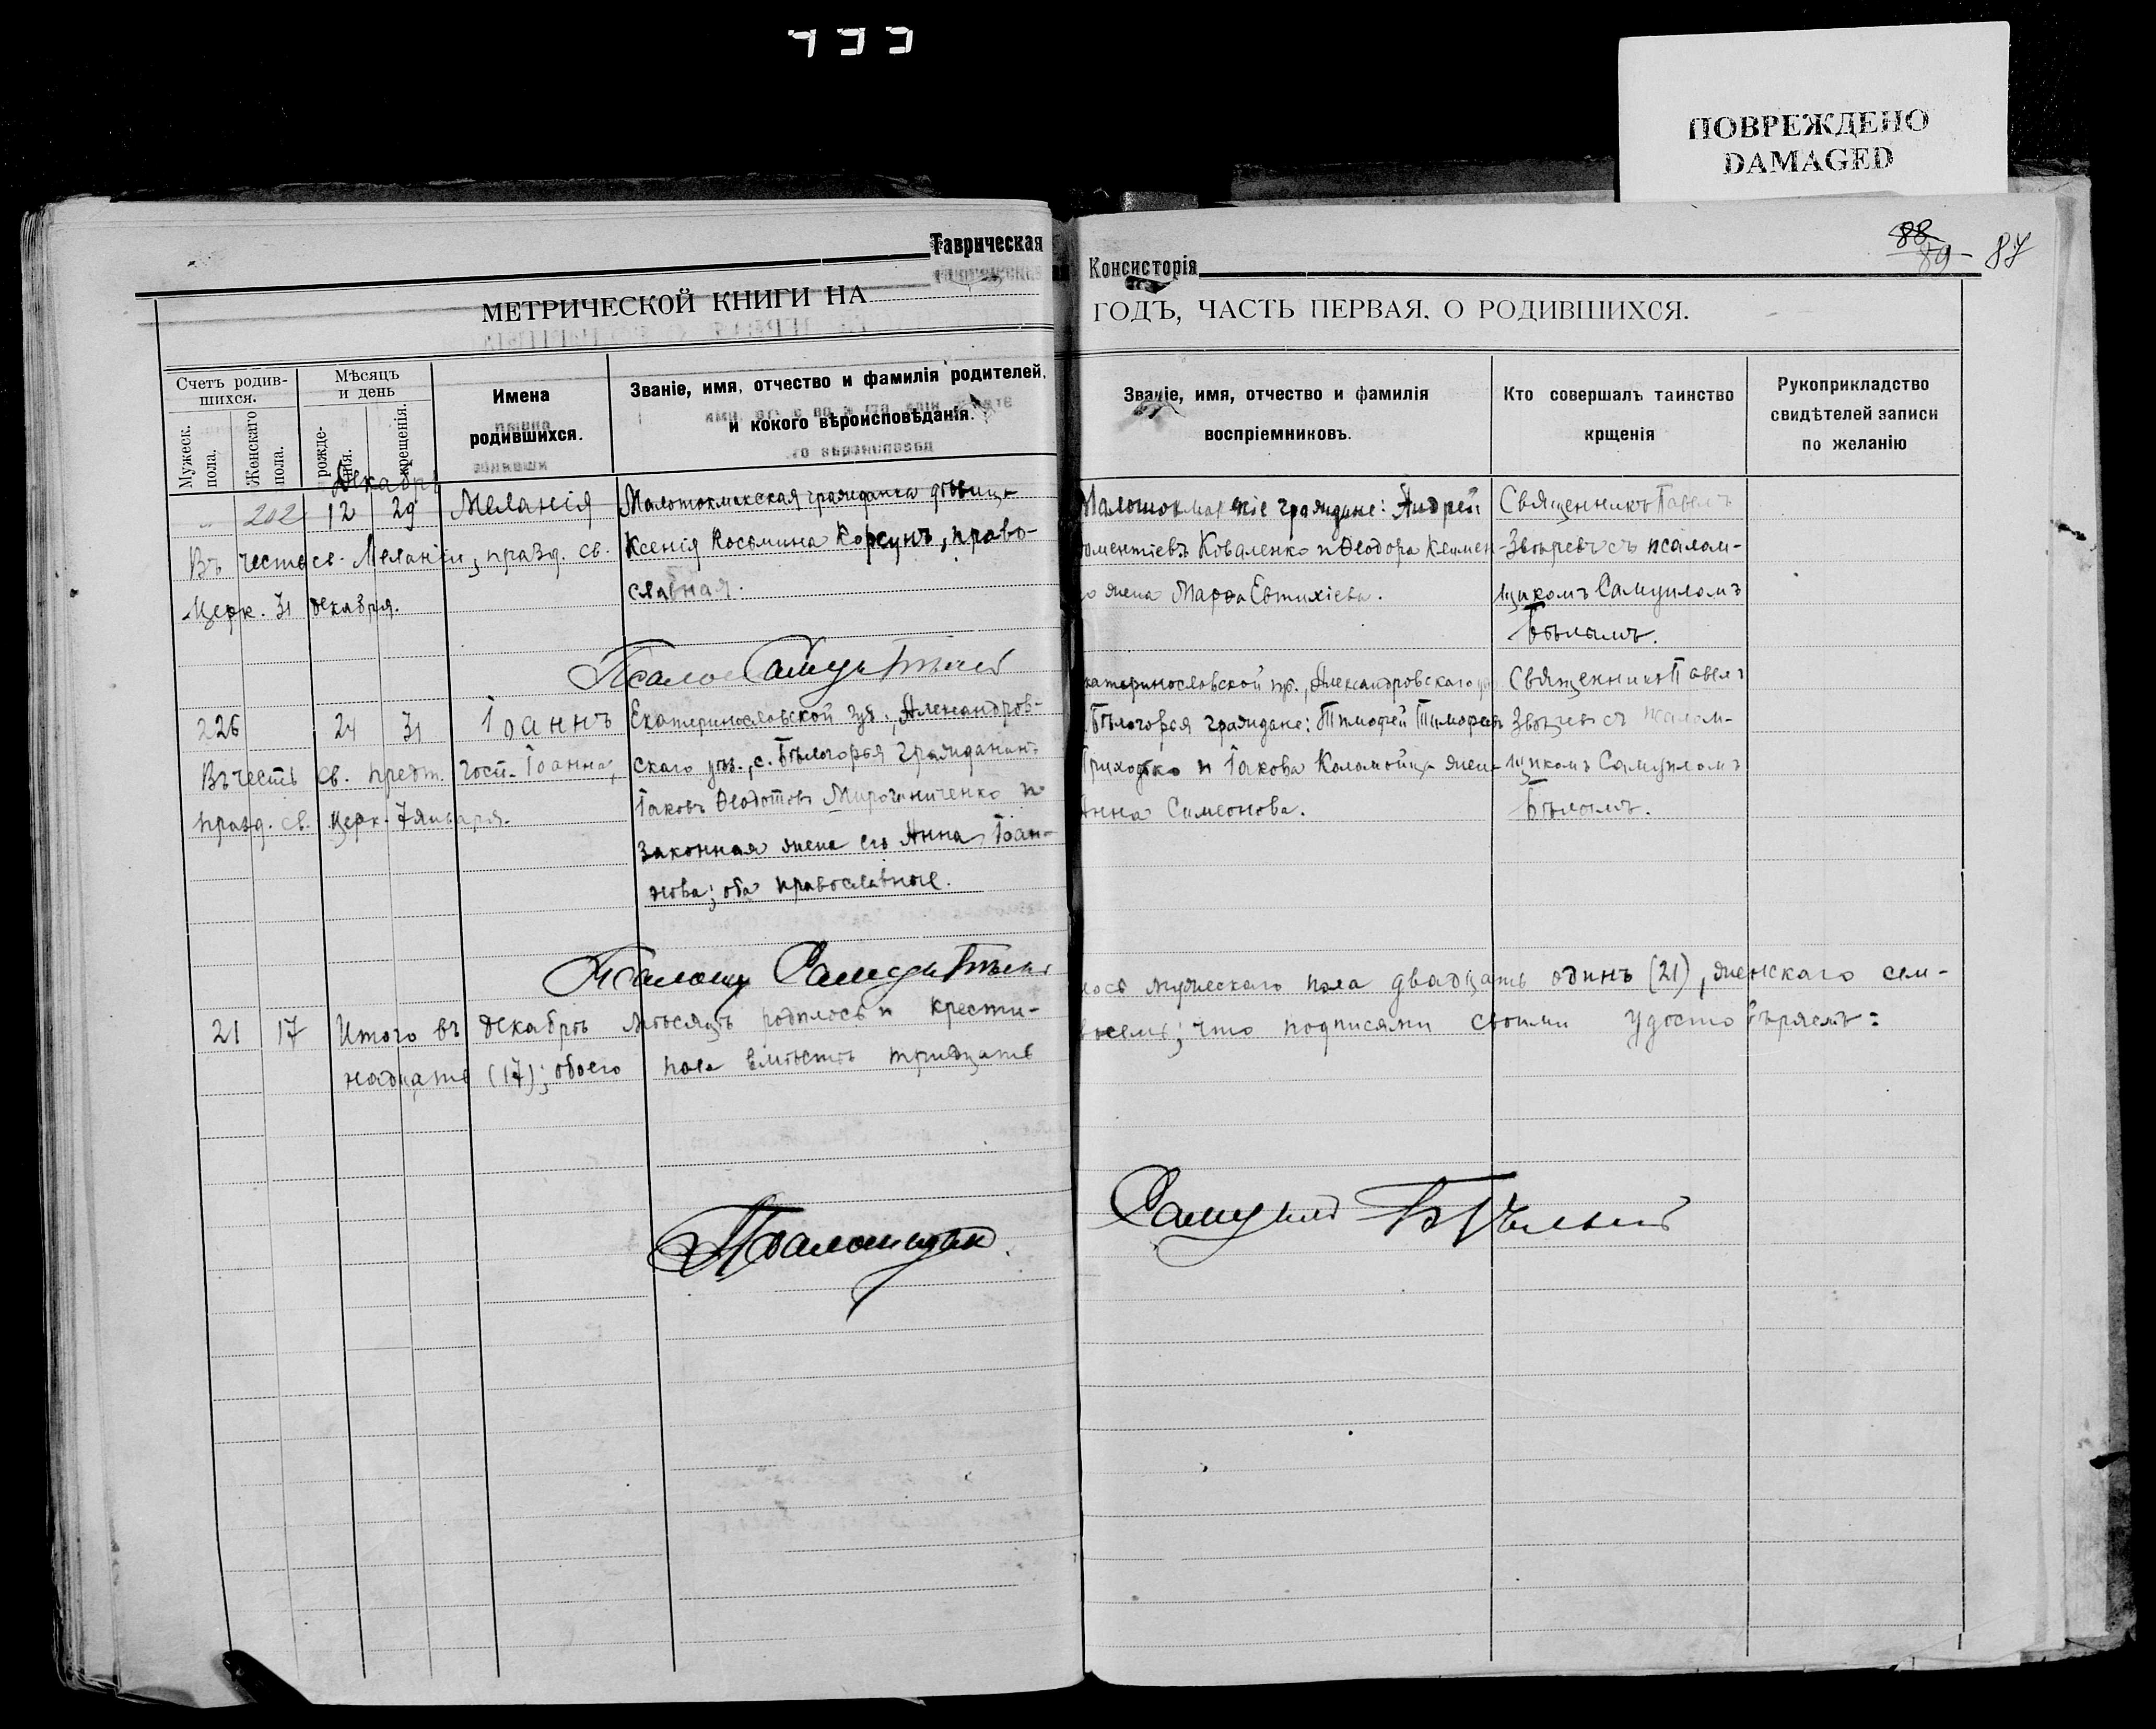 ПОВРЕЖДЕНО
DAMAGED
Таврическая
Консисторія
88
89 - 87
МЕТРИЧЕСКОЙ КНИГИ НА
ГОДЪ, ЧАСТЬ ПЕРВАЯ, О РОДИВШИХСЯ.
Счетъ родив-
шихся.
Мужеск.
пола.
Женскаго
пола.
Мѣсяцъ
и день
рожде-
нія.
крещенія.
Имена
родившихся.
Званіе, имя, отчество и фамилія родителей,
и кокого вѣроисповѣданія.
Званіе, имя, отчество и фамилія
воспріемниковъ.
Кто совершалъ таинство
крщенія
Рукоприкладство
свидѣтелей записи
по желанію
Декабрь
„ 202 12 29 Меланія
Въ честь св. Меланіи, празд. св.
Церк. 31 декабря.
Малотокмакская гражданка дѣвица
Ксенія Косьмина Корсунъ, право-
славная.
Малотокмакскіе граждане: Андрей
Коваленко и Ѳеодора
жена Марѳа Евтихіева.
Священникъ Павелъ
Звѣревъ съ псалом-
щикомъ Самуиломъ
Бѣлымъ.
Самуилъ Бѣлый
226 24 31 Іоаннъ
Въ честь св. предт. Госп. Іоанна,
празд. св. Церк. 7 января.
Екатеринославской губ., Александров-
скаго уѣз., с. Бѣлогорья гражданинъ
Іаковъ Ѳеодотовъ и
законная жена его Анна Іоан-
нова; оба православные.
катеринославской губ., Александровскаго
Бѣлогорья граждане: Тимофей Тимофеевъ
Приходько и Іакова Коломойца жена
Анна Симеонова.
Священникъ Павелъ
Звѣревъ съ псалом-
щикомъ Самуиломъ
Бѣлымъ.
Псаломщ Самуилъ Бѣлый
21 17 Итого въ декабрѣ мѣсяцѣ родилось и крести-
лось мужескаго пола двадцать одинъ (21), женскаго сем-
надцать (17); обоего пола вмѣстѣ тридцать
восемь; что подписями своими удостовѣряемъ:
Псаломщик Самуилъ Бѣлый